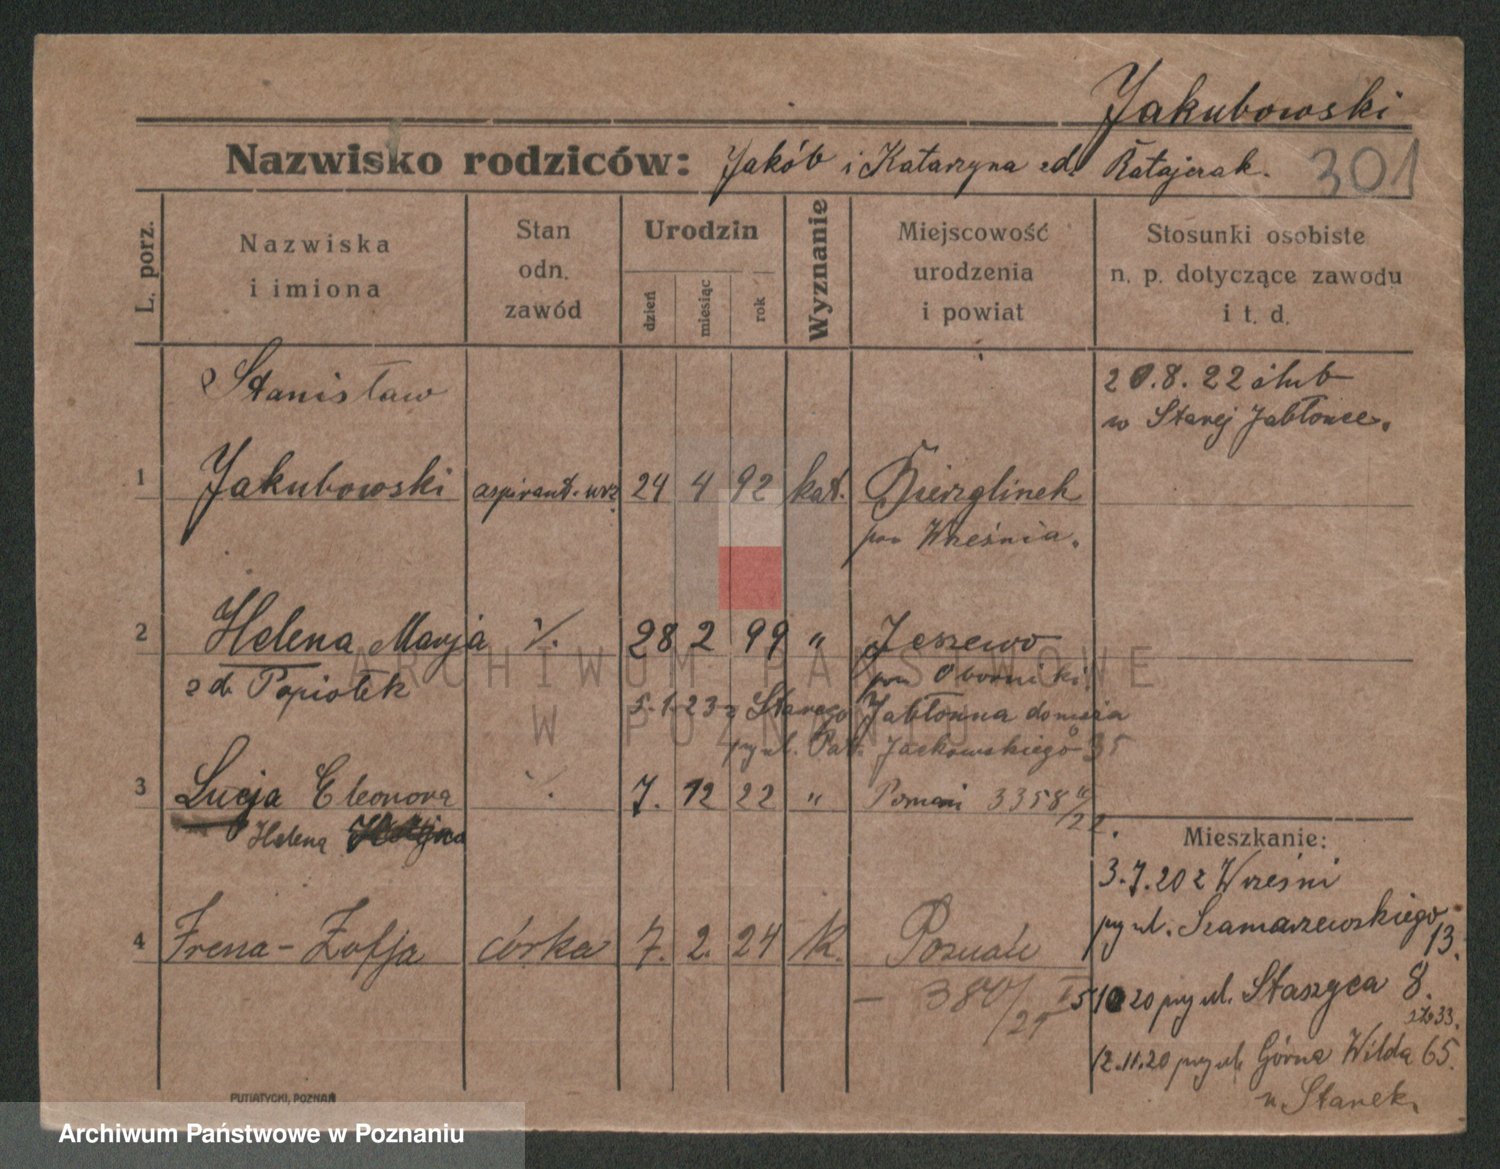 Jakubowski
Nazwisko rodziców: Jakób i Katarzyna zd. Ratajczak. 301
L. porz.
Nazwiska
i imiona
Stan
odn.
zawód
Urodzin
dzień
miesiąc
rok
Wyznanie
Miejscowość
urodzenia
i powiat
Stosunki osobiste
n. p. dotyczące zawodu
i t. d.
Stanisław
20.8.22 ślub
w Starej Jabłonce.
1 Jakubowski aspirant. urz. 24 4 92 kat. Bierzglinek
pow Września.
2 Helena Marja ·/. 28 2 99 " Jeszewo
zd. Popiołek
pow Oborniki.
5.1.23 z Starego Jabłonna
przy ul. Pat. Jackowskiego 35
3 Lucja Eleonora ·/. 7. 12 22 " Poznań 3358 /22.
Helena
Mieszkanie:
3.7.20 z Wrześni
przy ul. Szamarzewskiego
13.
4 Irena-Zofja córka 7. 2. 24 k. Poznań
5 10 20 przy ul. Staszyca 8.
12.11.20 przy ul. Górna Wilda 65.
u. Stanek.
PUTIATYCKI, POZNAŃ
ARCHIWUM PAŃSTWOWE
W POZNANIU
Archiwum Państwowe w Poznaniu